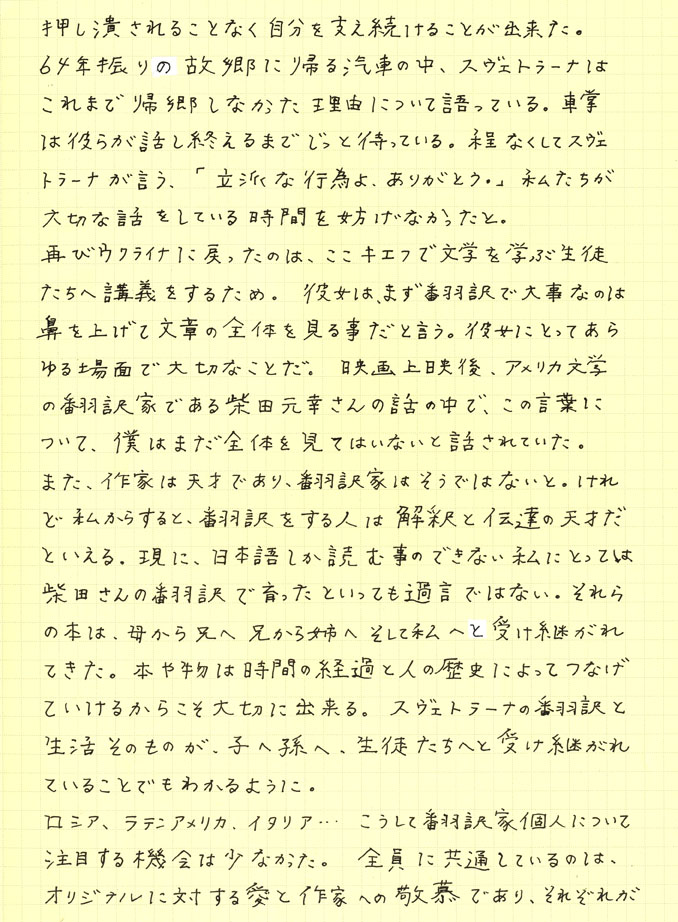 押し潰されることなく自分を支え続けることが出来た。
64年振りの故郷に帰る汽車の中、スヴェトラーナは
これまで帰郷しなかった理由について語っている。車掌
は彼らが話し終えるまでじっと待っている。程なくしてスヴェ
トラーナが言う、「立派な行為よ、ありがとう。」私たちが
大切な話をしている時間を妨げなかったと。
再びウクライナに戻ったのは、ここキエフで文学を学ぶ生徒
たちへ講義をするため。彼女は、まず翻訳で大事なのは
鼻を上げて文章の全体を見る事だと言う。彼女にとってあら
ゆる場面で大切なことだ。映画上映後、アメリカ文学
の翻訳家である柴田元幸さんの話の中で、この言葉に
ついて、僕はまだ全体を見てはいないと話されていた。
また、作家は天才であり、翻訳家はそうではないと。けれ
ど私からすると、翻訳をする人は解釈と伝達の天才だ
といえる。現に、日本語しか読む事のできない私にとっては
柴田さんの翻訳で育ったといっても過言ではない。それら
の本は、母から兄へ兄から姉へそして私へと受け継がれ
てきた。本や物は時間の経過と人の歴史によってつなげ
ていけるからこそ大切に出来る。スヴェトラーナの翻訳と
生活そのものが、子へ孫へ、生徒たちへと受け継がれ
ていることでもわかるように。
ロシア、ラテンアメリカ、イタリア… こうして翻訳家個人について
注目する機会は少なかった。全員に共通しているのは、
オリジナルに対する愛と作家への敬慕であり、それぞれが